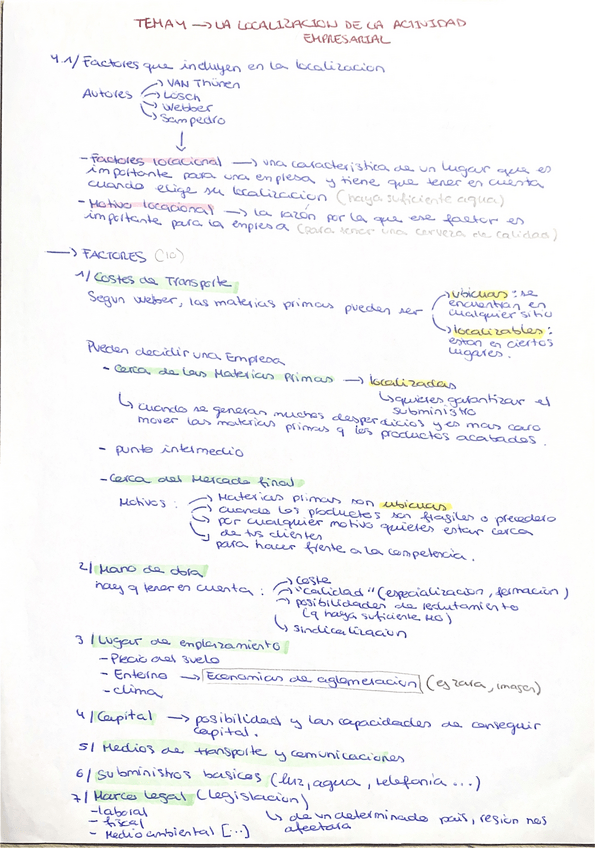 TEMA 4 → LA LOCALIZACION DE LA ACTIVIDAD
EMPRESARIAL
4.1/ Factores que incluyen en la localizacion
Autores → VAN Thünen
→ Losch
→ Webber
→ Sampedro
- Factores locacional → una caracteristica de un lugar que es
importante para una empresa y tiene que tener es cuenta
cuando elige su localizacion (haya suficiente agua)
- Motivo locacional → la razón por la que ese factor es
importante para la enpresa (para tener una cerveza de calidad)
→ FACTORES (10)
1/ Costes de Transporte
Segun Weber, las materias primas pueden ser
→ ubicuas: se
encuentran en
cualquier sitio
→ localizables:
estan en ciertos
lugares.
Pueden decidir una Empresa
- Cerca de las Materias primas → localizadas
↳ quieres garantizar el
subministro
↳ cuando se generan muchos desperdicios y es mas caro
mover las materias primas q los productos acabados.
- punto intermedio
- Cerca del Mercado final
Motivos: → Materias primas son ubicuas
→ cuando los productos son fragiles o precedero
→ por cualquier motivo quieres estar cerca
de tus clientes
→ para hacer frente a la competencia.
2/ Mano de obra
hay q tener en cuenta: → coste
→ "calidad" (especializacion, formacion)
→ posibilidades de reclutamiento
(q haya suficiente MO)
↳ sindicalizacion
3/ Lugar de emplazamiento
- Precio del suelo
- Entorno → Economias de aglomeracion (ej zara, imagen)
- clima
4/ Capital → posibilidad y las capacidades de conseguir
capital.
5/ Medios de transporte y comunicaciones
6/ Subministros basicos (luz, agua, telefonia ...)
7/ Marco legal (legislacion)
- laboral
↳ de un determinado pais, region nos
- fiscal
afectara
- Medio ambiental [...]